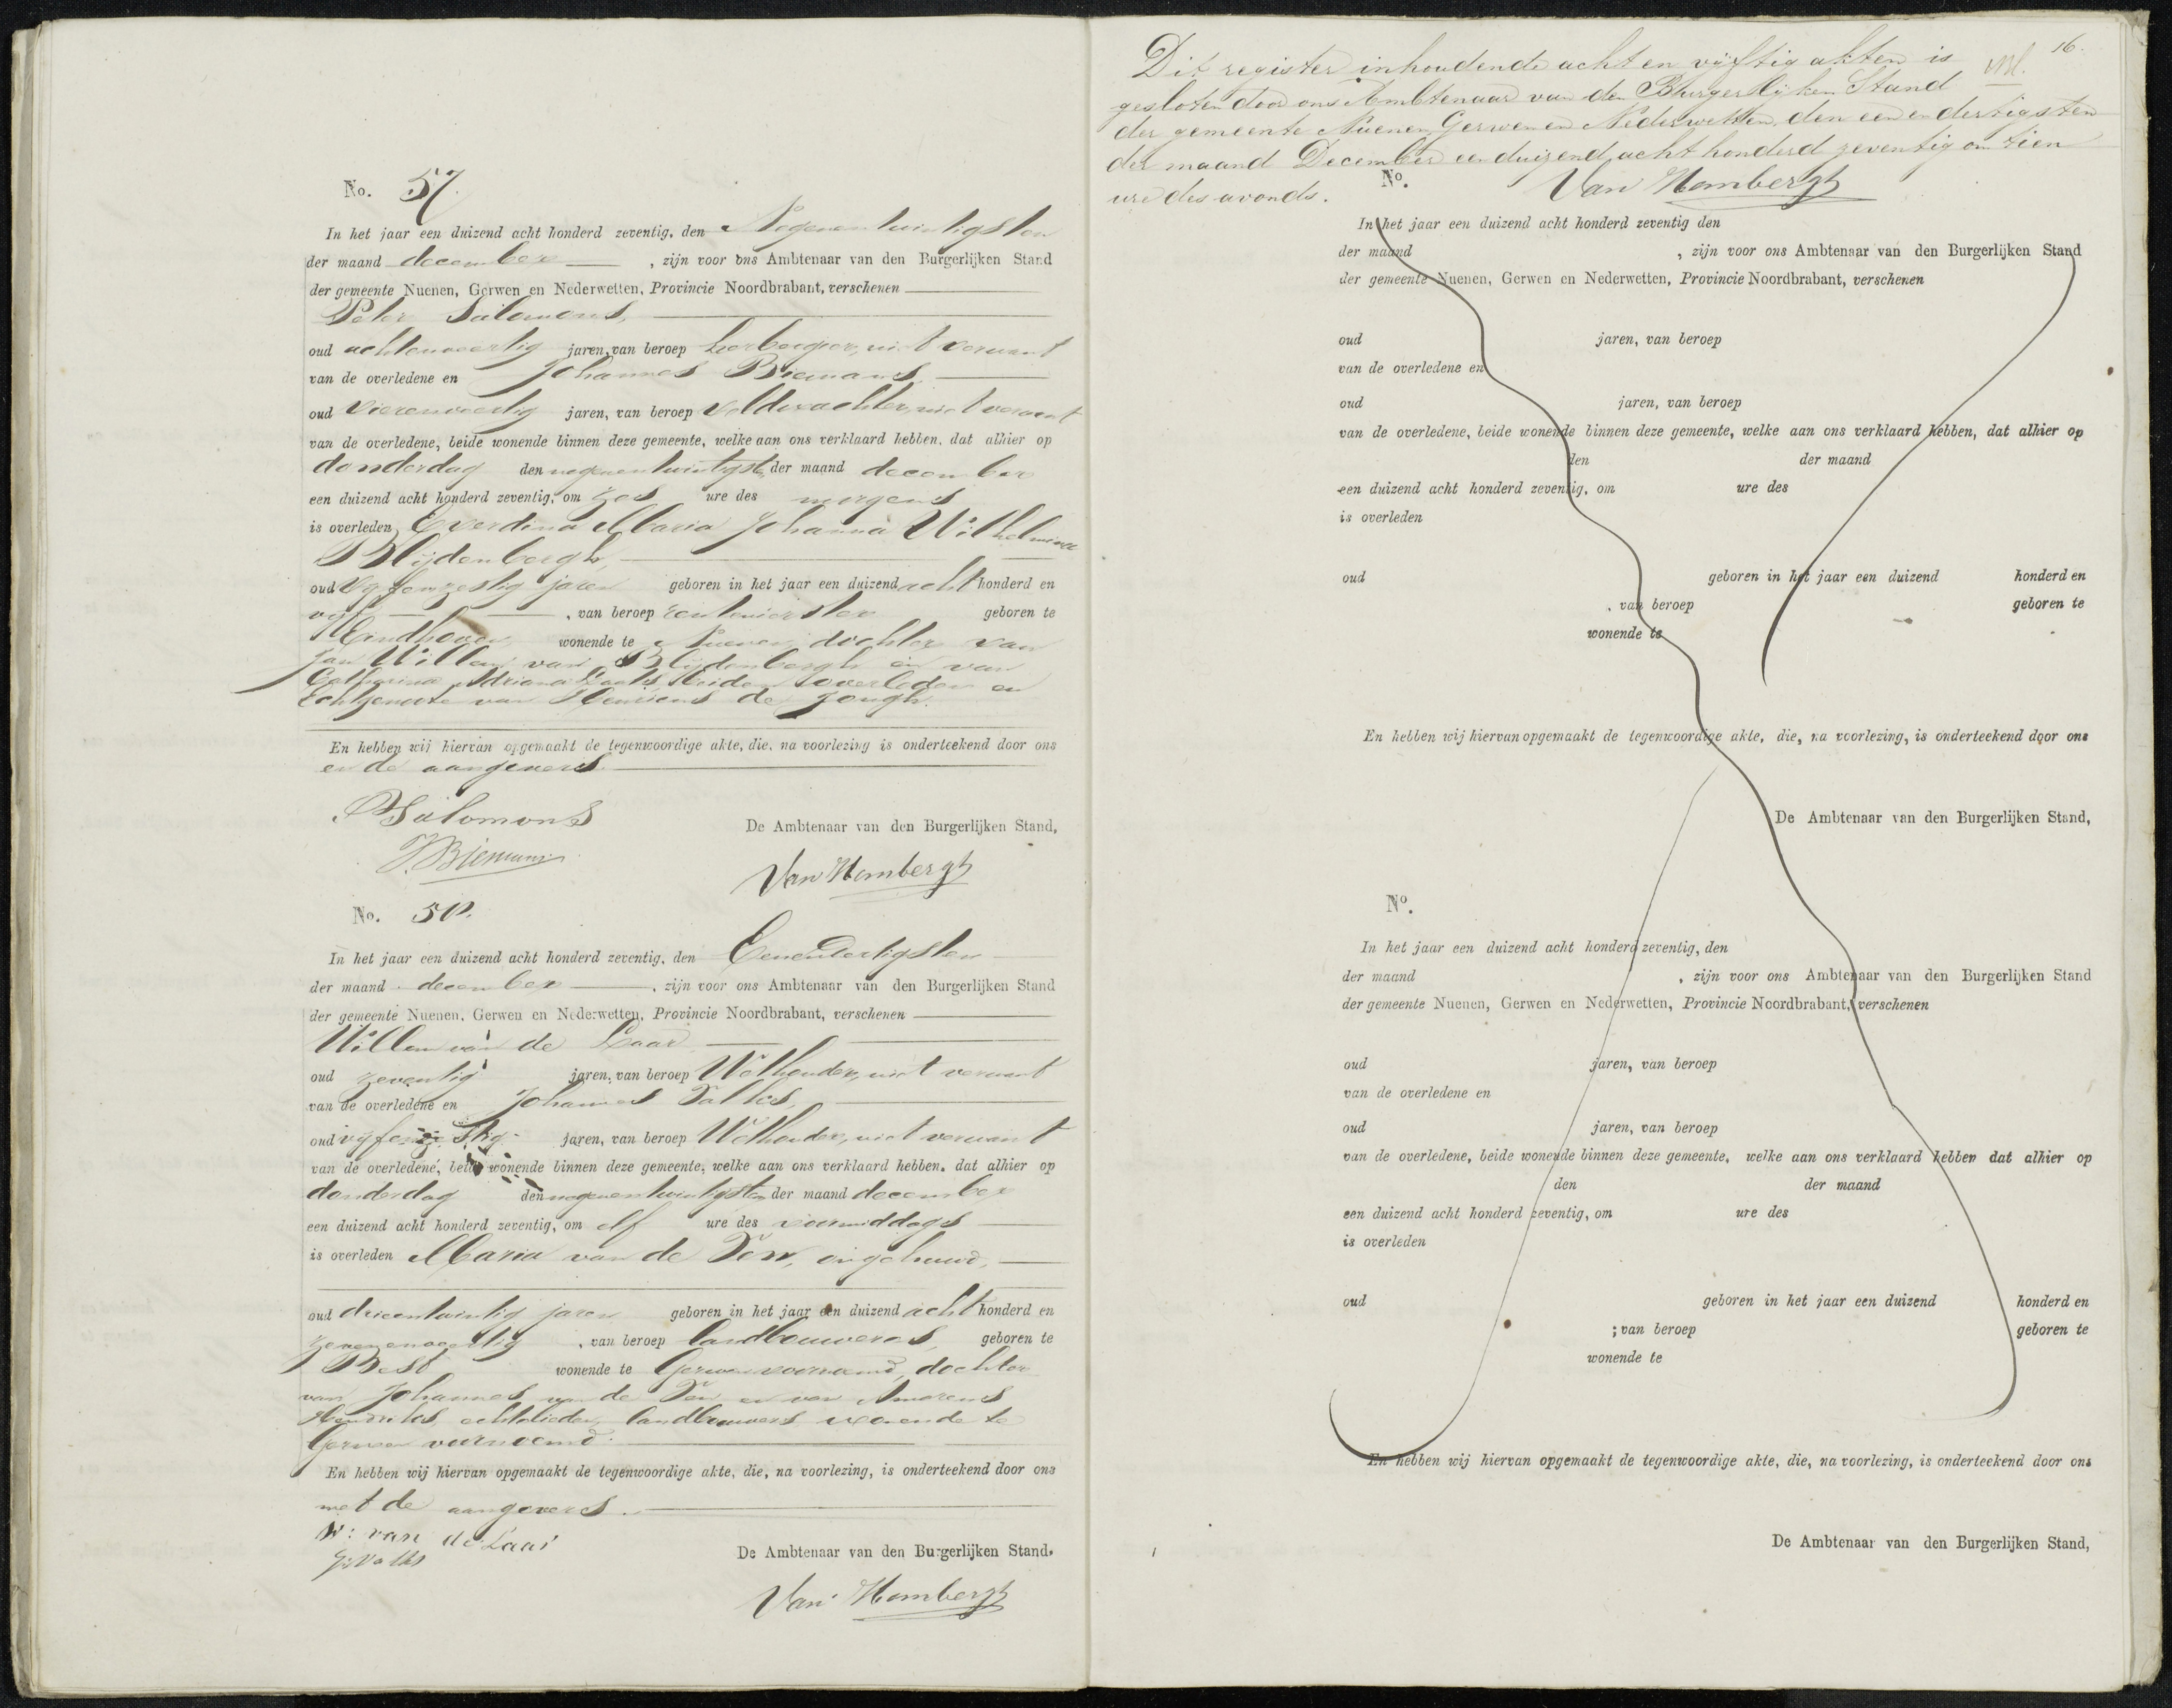 No. 57.
In het jaar een duizend acht honderd zeventig, den Negenentwintigsten
der maand december , zijn voor ons Ambtenaar van den Burgerlijken Stand
der gemeente Nuenen, Gerwen en Nederwetten, Provincie Noordbrabant, verschenen
Peter Salomons,
oud achtenveertig jaren, van beroep herbergier, niet verwant
van de overledene en Johannes Biemans
oud vierenveertig jaren, van beroep veldwachter, niet verwant
van de overledene, beide wonende binnen deze gemeente, welke aan ons verklaard hebben, dat alhier op
donderdag den negenentwintigsten der maand december
een duizend acht honderd zeventig, om zes ure des morgens
is overleden Everdina Maria Johanna Wilhelmina
Blijdenbergh,
oud vijfenzestig jaren geboren in het jaar een duizend acht honderd en
vijf , van beroep rentenierster geboren te
Eindhoven wonende te Nuenen dochter van
Jan Willem van Blijdenbergh en van
Catharina Adriana beiden overleden en
Echtgenoote van de Jongh.
En hebben wij hiervan opgemaakt de tegenwoordige akte, die, na voorlezing is onderteekend door ons
en de aangevers.
P Salomons
J. Biemans
De Ambtenaar van den Burgerlijken Stand,
Van Hombergh
No. 58.
In het jaar een duizend acht honderd zeventig, den Eenendertigsten
der maand december , zijn voor ons Ambtenaar van den Burgerlijken Stand
der gemeente Nuenen, Gerwen en Nederwetten, Provincie Noordbrabant, verschenen
Willem van de Laar
oud zeventig jaren, van beroep Wethouder, niet verwant
van de overledene en Johannes Valks,
oud vijfenzestig jaren, van beroep Wethouder, niet verwant
van de overledene, beide wonende binnen deze gemeente, welke aan ons verklaard hebben, dat alhier op
donderdag den negenentwintigsten der maand december
een duizend acht honderd zeventig, om elf ure des voormiddags
is overleden Maria van de Ven, ongehuwd,
oud drieentwintig jaren geboren in het jaar een duizend acht honderd en
zevenenveertig , van beroep landbouweres, geboren te
Best wonende te Gerwen voornoemd, dochter
van Johannes van de Ven en van
Hendriks, echtelieden, landbouwers wonende te
Gerwen voornoemd.
En hebben wij hiervan opgemaakt de tegenwoordige akte, die, na voorlezing, is onderteekend door ons
met de aangevers.
W: van de Laar
J: Valks
De Ambtenaar van den Burgerlijken Stand.
Van Hombergh
16.
Dit register inhoudende acht en vijftig akten is
gesloten door ons Ambtenaar van den Burgerlijken Stand
der gemeente Nuenen, Gerwen en Nederwetten, den een en dertigsten
der maand December een duizend acht honderd zeventig om tien
ure des avonds.
Van Hombergh
No.
In het jaar een duizend acht honderd zeventig den
der maand , zijn voor ons Ambtenaar van den Burgerlijken Stand
der gemeente Nuenen, Gerwen en Nederwetten, Provincie Noordbrabant, verschenen
oud jaren, van beroep
van de overledene en
oud jaren, van beroep
van de overledene, beide wonende binnen deze gemeente, welke aan ons verklaard hebben, dat alhier op
den der maand
een duizend acht honderd zeventig, om ure des
is overleden
oud geboren in het jaar een duizend honderd en
, van beroep geboren te
wonende te
En hebben wij hiervan opgemaakt de tegenwoordige akte, die, na voorlezing, is onderteekend door ons
De Ambtenaar van den Burgerlijken Stand,
No.
In het jaar een duizend acht honderd zeventig, den
der maand , zijn voor ons Ambtenaar van den Burgerlijken Stand
der gemeente Nuenen, Gerwen en Nederwetten, Provincie Noordbrabant, verschenen
oud jaren, van beroep
van de overledene en
oud jaren, van beroep
van de overledene, beide wonende binnen deze gemeente, welke aan ons verklaard hebben dat alhier op
den der maand
een duizend acht honderd zeventig, om ure des
is overleden
oud geboren in het jaar een duizend honderd en
; van beroep geboren te
wonende te
En hebben wij hiervan opgemaakt de tegenwoordige akte, die, na voorlezing, is onderteekend door ons
De Ambtenaar van den Burgerlijken Stand,